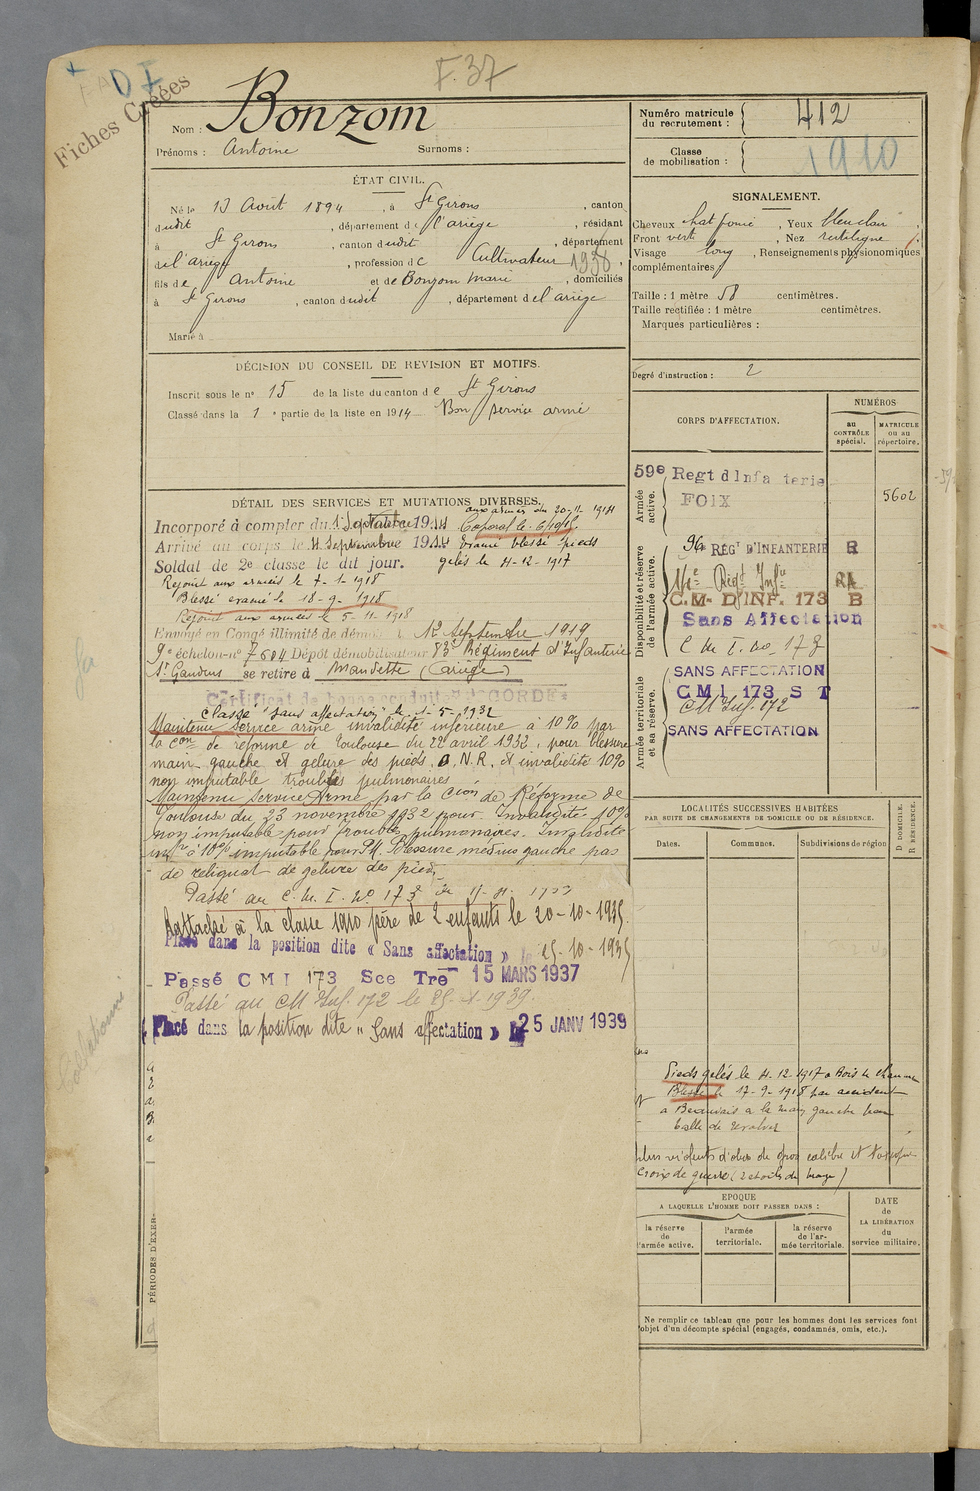 F.37
Fiches Créées
Nom : Bonzom
Prénoms : Antoine Surnoms :
Numéro matricule du recrutement : 412
Classe de mobilisation : 1910
ÉTAT CIVIL.
Né le 13 Août 1894, à St Girons, canton
dudit, département de l'ariège, résidant
à St Girons, canton dudit, département
de l'ariège, profession de Cultivateur 1938,
fils de Antoine et de Bonzom Marie, domiciliés
à St Girons, canton dudit, département de l'ariège
Marié à
SIGNALEMENT.
Cheveux chat foncé, Yeux bleu clair
Front vert, Nez rectiligne
Visage long, Renseignements physionomiques
complémentaires
Taille : 1 mètre 58 centimètres.
Taille rectifiée : 1 mètre centimètres.
Marques particulières :
Degré d'instruction : 2
DÉCISION DU CONSEIL DE REVISION ET MOTIFS.
Inscrit sous le n° 15 de la liste du canton de St Girons
Classé dans la 1e partie de la liste en 1914 Bon service armé
DÉTAIL DES SERVICES ET MUTATIONS DIVERSES.
aux armées du 20-11-1914
Incorporé à compter du 1 Septembre 1914 Caporal le
Arrivé au corps le 4 Septembre 1914 Evacué blessé pieds
Soldat de 2e classe le dit jour. gelés le 4-12-1917
Rejoint aux armées le 7-1-1918
Blessé evacué le 18-9-1918
Rejoint aux armées le 5-11-1918
Envoyé en Congé illimité de démob. le 12 Septembre 1919
9e échelon n° 7604 Dépôt démobilisateur 83e Régiment d'Infanterie
St Gaudens se retire à Moudette (Ariège)
Certificat de bonne conduite ACCORDÉ
Classé "sans affectation" le 1-5-1932
Maintenu Service armé invalidité inférieure à 10% par
la Con de réforme de Toulouse du 22 avril 1932, pour blessure
main gauche et gelure des pieds, O.N.R. et invalidité 10%
non imputable troubles pulmonaires.
Maintenu Service Armé par la Cion de Réforme de
Toulouse du 23 novembre 1932 pour Invalidité 10%
non imputable pour Troubles pulmonaires. Invalidité
infre à 10% imputable pour PM Blessure médius gauche pas
de reliquat de gelure des pieds
Passé au C.M.I. No 173 le
Rattaché à la classe 1910 père de 2 enfants le 20-10-1935.
Placé dans la position dite « Sans affectation » le 25-10-1935
Passé C M I 173 Sce Tre 15 MARS 1937
Passé au CM Inf. 172 le 1939.
Placé dans la position dite « Sans affectation » le 25 JANV 1939
PÉRIODES D'EXER-
CORPS D'AFFECTATION.
NUMÉROS
au CONTRÔLE spécial.
MATRICULE ou au répertoire.
Armée active.
59e Regt d'Infanterie
FOIX
5602
Disponibilité et réserve de l'armée active.
96 RÉGt D'INFANTERIE R
Regt Infie
C.M. D'INF. 173 B
Sans Affectation
C M I No 173
Armée territoriale et sa réserve.
SANS AFFECTATION
C M I 173 S T
CM Inf. 172
SANS AFFECTATION
LOCALITÉS SUCCESSIVES HABITÉES
PAR SUITE DE CHANGEMENTS DE DOMICILE OU DE RÉSIDENCE.
Dates.
Communes.
Subdivisions de région
D. DOMICILE.
R. RÉSIDENCE.
Pieds gelés le 4-12-1917 à Bois le Chaume
Blessé le 17-9-1918 par accident
à Beauvais à la main gauche par
balle de revolver
plus violents d'obus de gros calibre et
Croix de guerre (2 etoiles de bronze)
EPOQUE
A LAQUELLE L'HOMME DOIT PASSER DANS :
la réserve de l'armée active.
l'armée territoriale.
la réserve de l'armée territoriale.
DATE de LA LIBÉRATION du service militaire.
Ne remplir ce tableau que pour les hommes dont les services font
l'objet d'un décompte spécial (engagés, condamnés, omis, etc.).